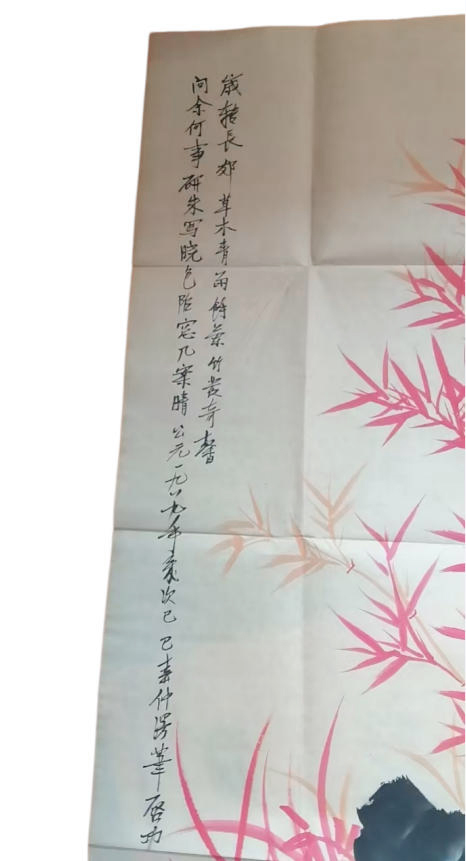 歲转長郊草木青雨餘叢竹發奇馨
问余何事研朱写晓色临窓几案晴公元一九八九年歲次己巳春仲启功